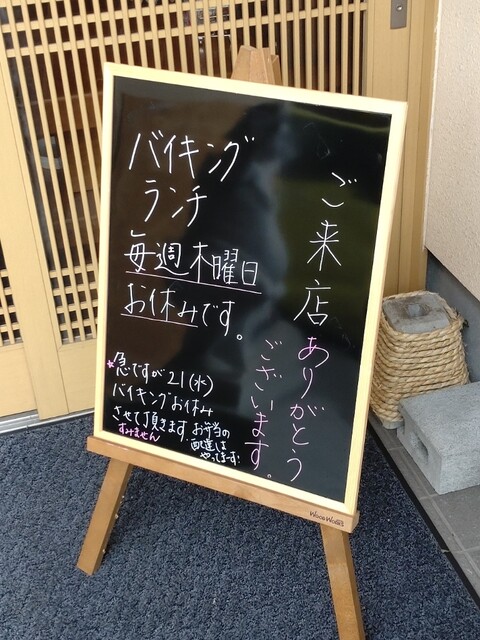 ご来店
ありがとう
ございます。
バイキング
ランチ
毎週木曜日
お休みです。
★急ですが21(水)
バイキングお休み
させて頂きます。お弁当の
すみません
配達は
やってます!